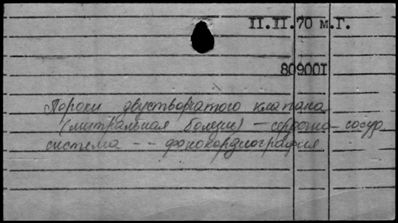 II.II.70 м.Г.
80900I
Пороки двустворчатого клапана
(митральная болезнь) – сердечно-сосуд.
система -- фонокардиография